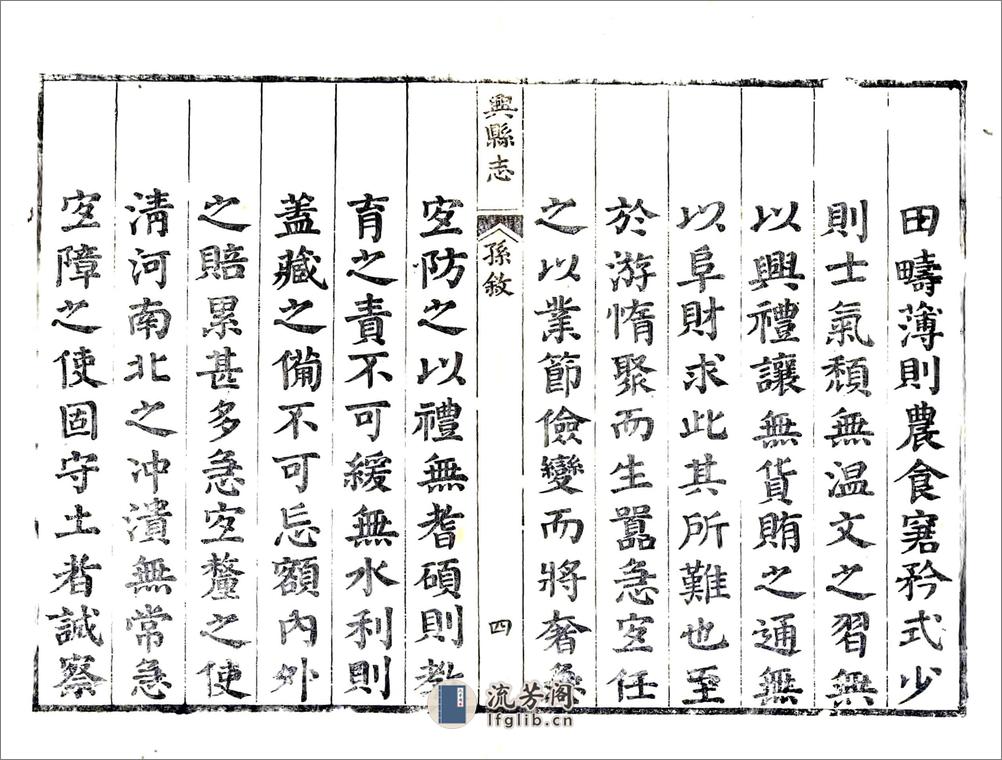 田疇薄則農食窘矜式少
則士氣頹無溫文之習無
以興禮讓無貨賄之通無
以阜財求此其所難也至
於游惰聚而生囂急宐任
之以業節儉變而將奢急
興縣志
孫敘
四
宐防之以禮無耆碩則教
育之責不可緩無水利則
蓋藏之備不可忘額內外
之賠累甚多急宐釐之使
清河南北之冲潰無常急
宐障之使固守土者誠察
流芳阁
lfglib.cn